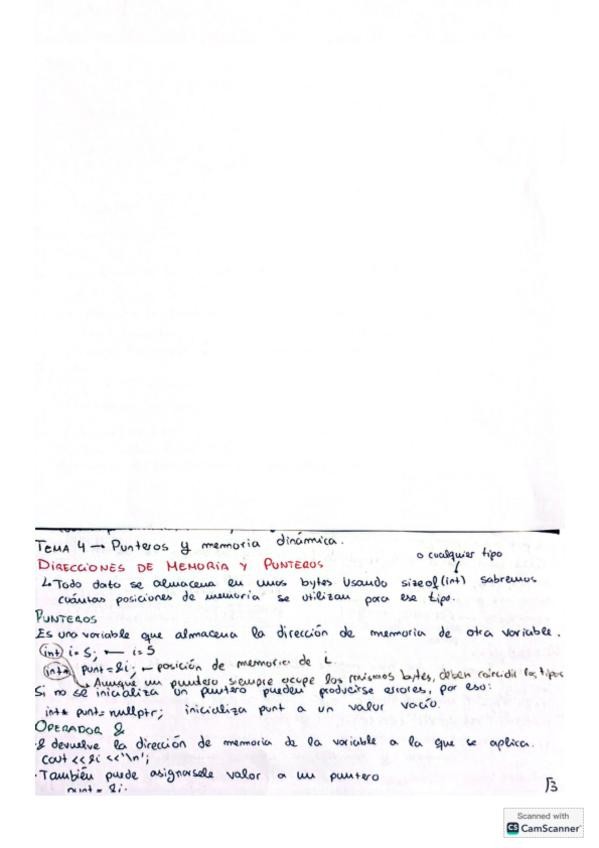 TEMA 4 → Punteros y memoria dinámica.
o cualquier tipo
DIRECCIONES DE MEMORIA Y PUNTEROS
↳ Todo dato se almacena en unos bytes Usando sizeof(int) sabremos
cuántas posiciones de memoria se utilizan para ese tipo.
PUNTEROS
Es una variable que almacena la dirección de memoria de otra variable.
int i = 5; ← i = 5
int* punt = &i; ← posición de memoria de i
Aunque un puntero siempre ocupe los mismos bytes, deben coincidir los tipos
Si no se inicializa un puntero pueden producirse errores, por eso:
int* punt = nullptr; inicializa punt a un valor vacío.
OPERADOR &
& devuelve la dirección de memoria de la variable a la que se aplica.
cout << &i << '\n';
· También puede asignarsele valor a un puntero
punt = &i.
Scanned with
CS CamScanner